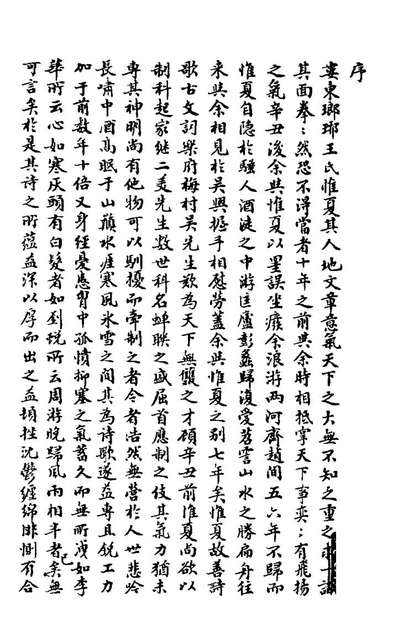 序
婁東瑯琊王氏惟夏其人地文章意氣天下之大無不知之重之求一識
其面拳〻然恐不得當者十年之前與余時相抵掌天下事奕〻有飛揚
之氣辛丑後余與惟夏以罣誤坐廢余浪游兩河齊趙間五六年不歸而
惟夏自隱於騷人酒徒之中游匡廬彭蠡歸復愛苕霅山水之勝扁舟往
来與余相見於吳興握手相慰勞蓋余與惟夏之别七年矣惟夏故善詩
歌古文詞樂府梅村吳先生歎為天下無雙之才顧辛丑前惟夏尚欲以
制科起家継二美先生数世科名蟬聯之盛屈首應制之伎其氣力猶未
專其神明尚有他物可以馴擾而牽制之者今者浩然無營於人世悲吟
長嘯中酒髙眠于山巔水涯寒風氷雪之間其為詩歌遂益專且銳工力
加于前数年十倍又身經憂患習中孤憤抑塞之氣蓄久而無所洩如李
華所云心如寒灰頭有白髮者如劉琨所云周游晚歸風雨相半者矣無
可言矣於是其詩之所蘊益深以厚而出之益頓挫沈鬱纏綿悱惻有合